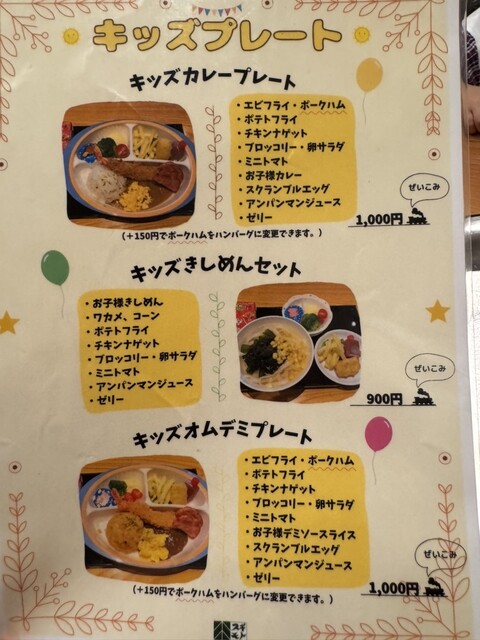 キッズプレート
キッズカレープレート
・エビフライ・ポークハム
・ポテトフライ
・チキンナゲット
・ブロッコリー・卵サラダ
・ミニトマト
・お子様カレー
・スクランブルエッグ
・アンパンマンジュース
・ゼリー
ぜいこみ
1,000円
(+150円でポークハムをハンバーグに変更できます。)
キッズきしめんセット
・お子様きしめん
・ワカメ、コーン
・ポテトフライ
・チキンナゲット
・ブロッコリー・卵サラダ
・ミニトマト
・アンパンマンジュース
・ゼリー
ぜいこみ
900円
キッズオムデミプレート
・エビフライ・ポークハム
・ポテトフライ
・チキンナゲット
・ブロッコリー・卵サラダ
・ミニトマト
・お子様デミソースライス
・スクランブルエッグ
・アンパンマンジュース
・ゼリー
ぜいこみ
1,000円
(+150円でポークハムをハンバーグに変更できます。)